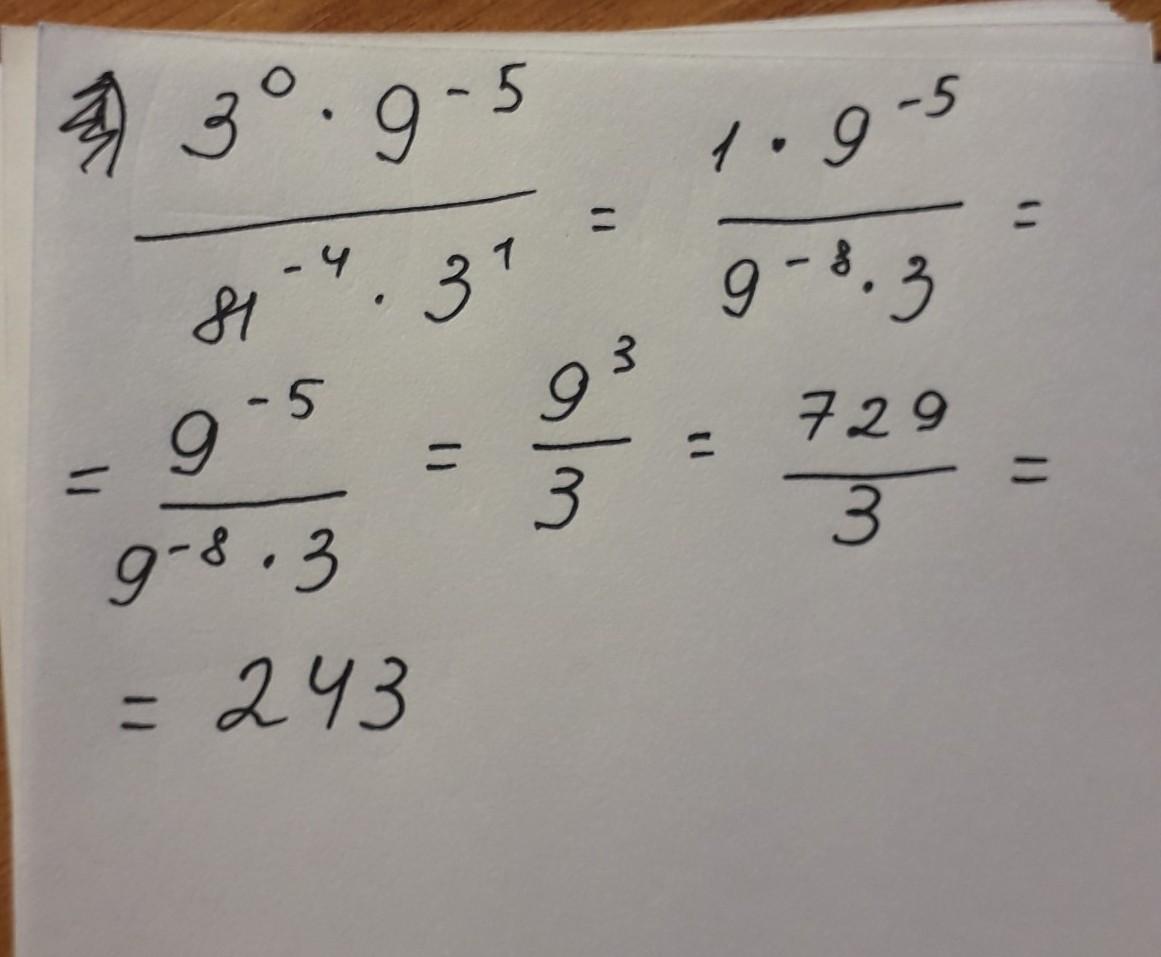 3⁰ · 9⁻⁵ / 81⁻⁴ · 3¹ = 1 · 9⁻⁵ / 9⁻⁸ · 3 =
= 9⁻⁵ / 9⁻⁸ · 3 = 9³ / 3 = 729 / 3 =
= 243